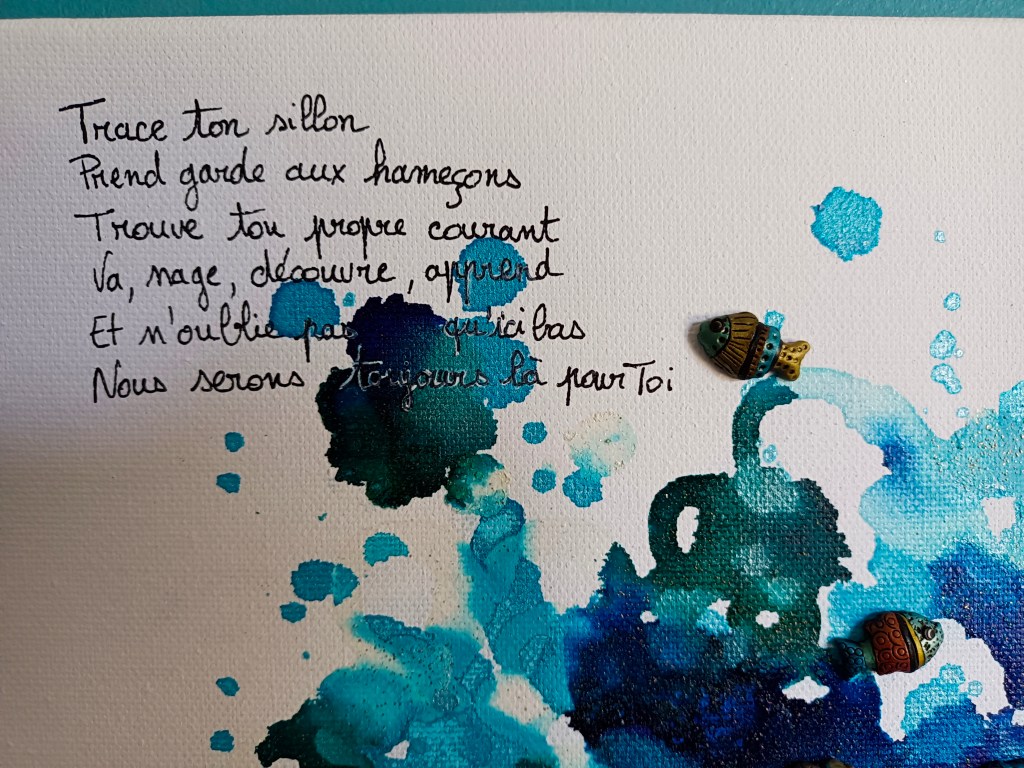 Trace ton sillon
Prend garde aux hameçons
Trouve ton propre courant
Va, nage, découvre, apprend
Et n'oublie pas qu'ici bas
Nous serons toujours là pour Toi